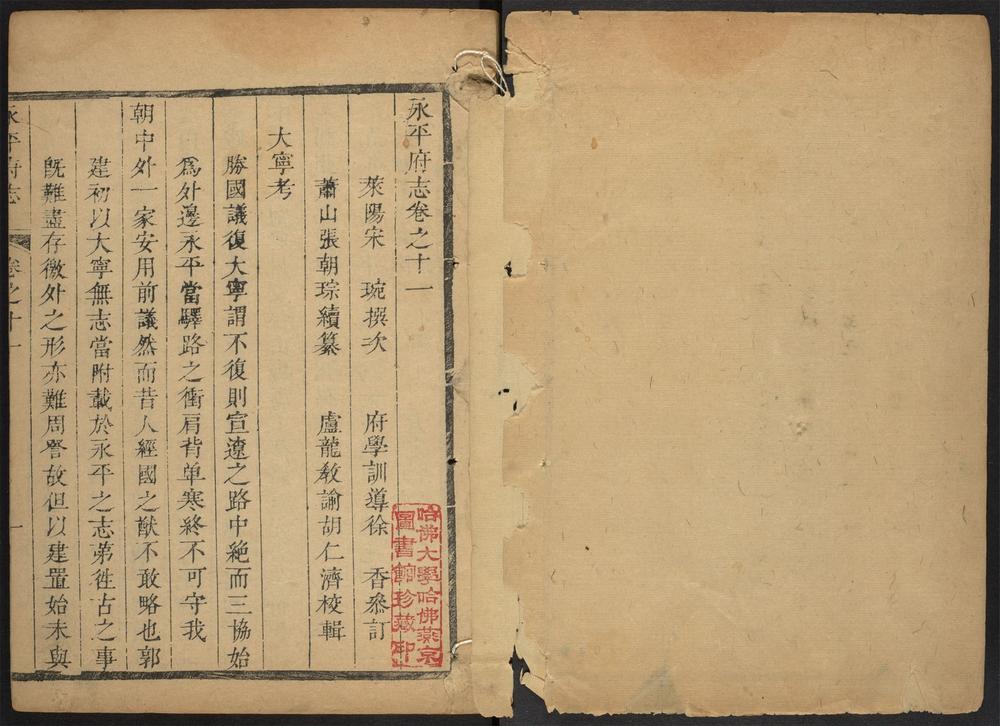 永平府志卷之十一
萊陽宋　琬撰次　府學訓導徐　香叅訂
蕭山張朝琮續纂　盧龍敎諭胡仁濟校輯
大寧考
勝國議復大寧謂不復則宣遼之路中絶而三協始
爲外邊永平當驛路之衝肩背单寒終不可守我
朝中外一家安用前議然而昔人經國之猷不敢略也郭
建初以大寧無志當附載於永平之志第徃古之事
旣難盡存徼外之形亦難周詧故但以建置始末與
永平府志　卷之十一　一
哈佛大學哈佛燕京
圖書館珍藏印